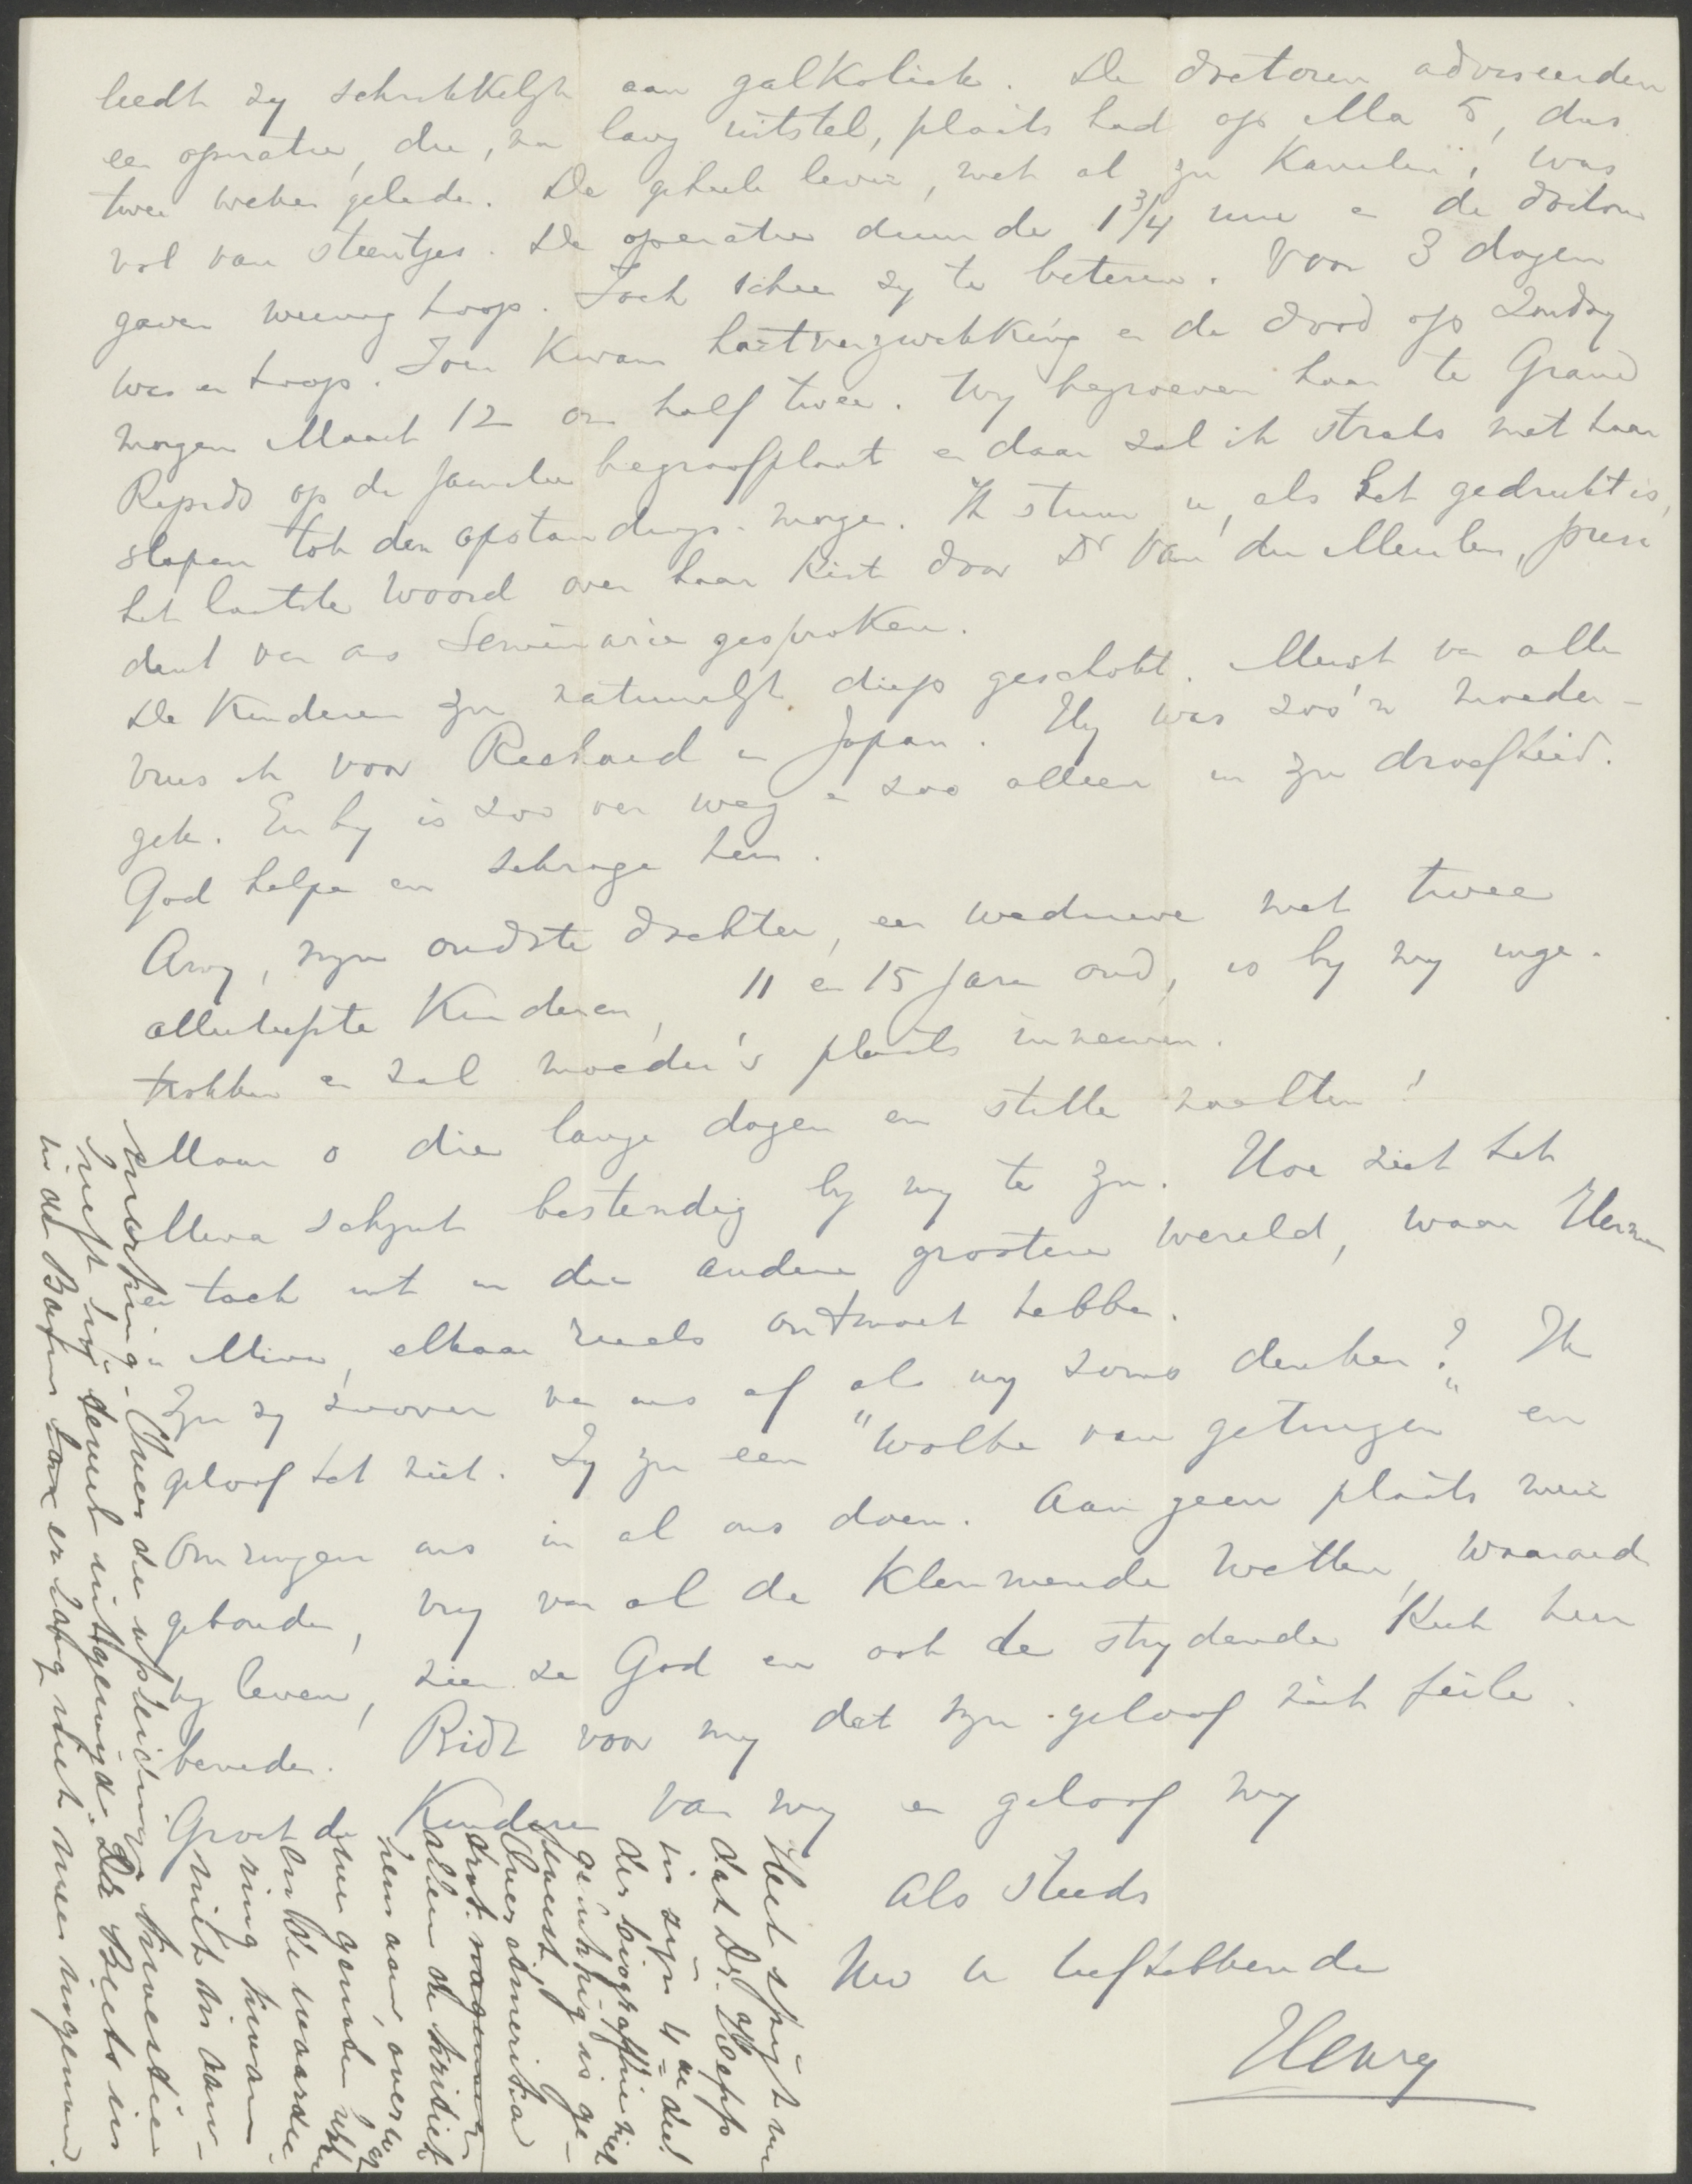 leedt zy schrikkelyk aan galkoliek. De doctoren adviseerden
een operatie, die, na lang uitstel, plaats had op Ma 5, dus
twee weken geleden. De geheele lever, met al zyn kanalen, was
vol van steentjes. De operatie duurde 1 3/4 uur en de doctoren
gaven weinig hoop. Toch scheen zy te beteren. Voor 3 dagen
was er hoop. Toen kwam hartverzwakking en de dood op Zondag
morgen Maart 12 om half twee. Wy begroeven haar te Grand
Rapids op de familie begraafplaats en daar zal ik straks met haar
slapen tot den opstandings-morgen. Ik stuur u, als het gedrukt is,
het laatste woord over haar kist door Dr Van der Meulen, presi
dent van ons Seminarie gesproken.
De kinderen zyn natuurlyk diep geschokt. Meest van allen
vrees ik voor Richard in Japan. Hy was zoo'n moeder-
gek. En hy is zoo ver weg en zoo alleen in zyn droefheid.
God helpe en schrage hem.
Amy, myn oudste dochter, een weduwe met twee
allerliefste kinderen, 11 en 15 jaren oud, is by my inge-
trokken en zal moeder's plaats innemen.
Maar o die lange dagen en stille nachten!
Mina schynt bestendig by my te zyn. Hoe ziet het
er toch uit in die andere grootere wereld, waar Herman
en Mina, elkaar reeds ontmoet hebben.
Zyn zy zoover van ons af als wy soms denken? Ik
geloof het niet. Zy zyn een "wolke van getuigen" en
omringen ons in al ons doen. Aan geen plaats meer
gebonden, vry van al de klemmende wetten, waaronder
wy leven, zien ze God en ook de strydende Kerk hier
beneden. Bidt voor my dat myn geloof niet feile.
Groet de Kinderen van my en geloof my
Als steeds
Uw u liefhebbende
Henry
Het spijt me
dat Dr. Aeff
in zijn 4de deel
der biografie niet
gelukkig is ge-
weest,
Over Amerika
alleen de kritiek
neem aan, over
hun
enkele waardee
ring kwam
nuit in aan-
merking. Over de upleidings kwestie
heeft hij
in de Bazuin